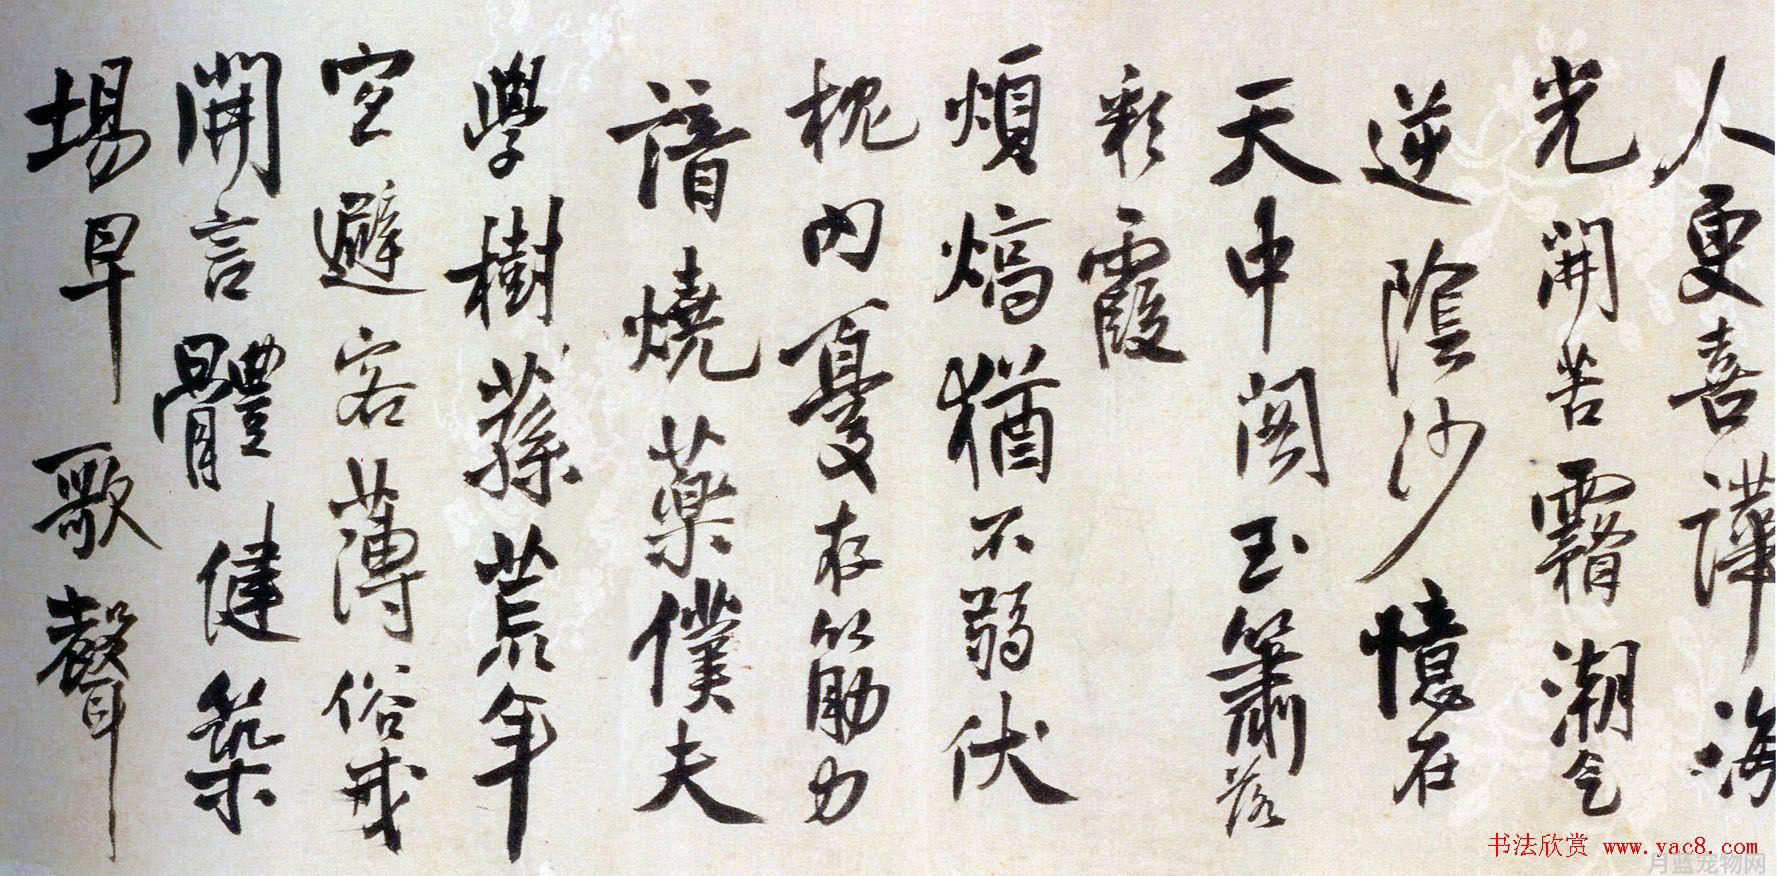 人更喜譁海
光開苦霧潮气
逆陰沙憶在
天中閣玉簫落
彩霞
煩熇猶不弱伏
枕內憂存筋力
諳燒藥僕夫
學樹蓀荒年
宜避客薄俗戒
開言體健築
場早歌聲
书法欣赏 www.yac8.com
月蓝宠物网